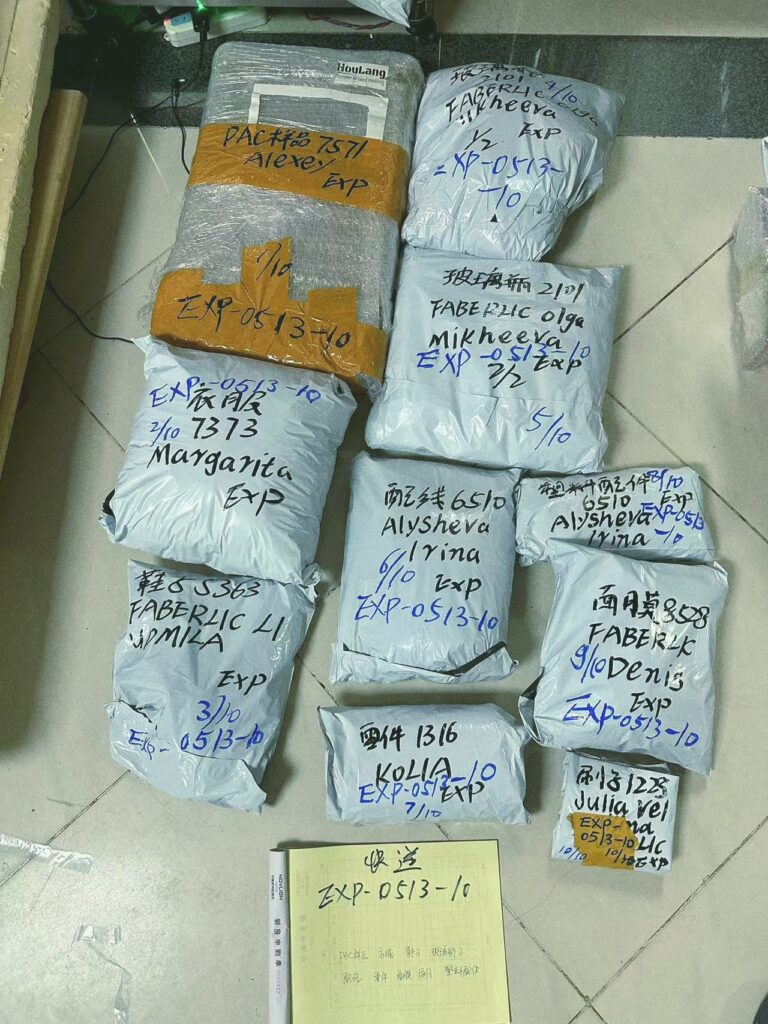 HouLang
PAC样品 7571
Alexey
Exp
1/10
EXP-0513-10
玻璃瓶
2101 4/10
FABERLIC Olga
Mikheeva
1/2 Exp
EXP-0513-
-10
玻璃瓶 2101
FABERLIC Olga
Mikheeva
EXP-0513-10
2/2 Exp
5/10
EXP-0513-10
衣服
2/10 7373
Margarita
Exp
配线 6510
Alysheva
Irina
6/10 Exp
EXP-0513-10
塑料配件 8/10
6510 Exp
Alysheva EXP-0513
Irina -10
鞋子 5363
FABERLIC LI
UDMILA
Exp
3/10
EXP-0513-10
面膜 8528
FABERLK
9/10 Denis
Exp
EXP-0513-10
零件 1316
KOLIA
EXP-0513-10
7/10 Exp
刷子 1228
Julia Vel
EXP- na
0513-10 LIC
10/10 10/10 Exp
快送
EXP-0513-10
PAC样品 衣服 鞋子 玻璃瓶2
配线 零件 面膜 刷子 塑料配件